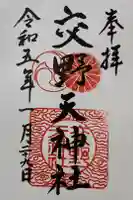 奉拝
交野天神社
令和五年一月二日